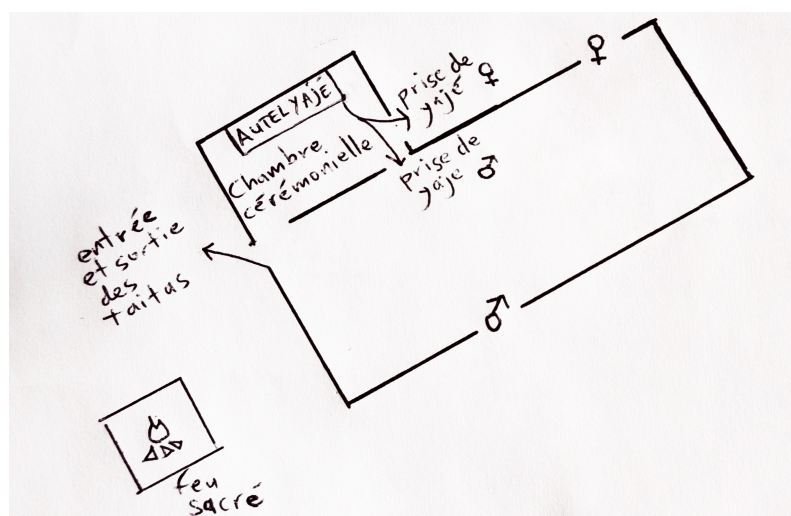 AUTEL YAJÉ
prise de
yajé ♀
♀
Chambre
cérémonielle
prise de
yaje ♂
entrée
et sortie
des
taitas
♂
feu
sacré